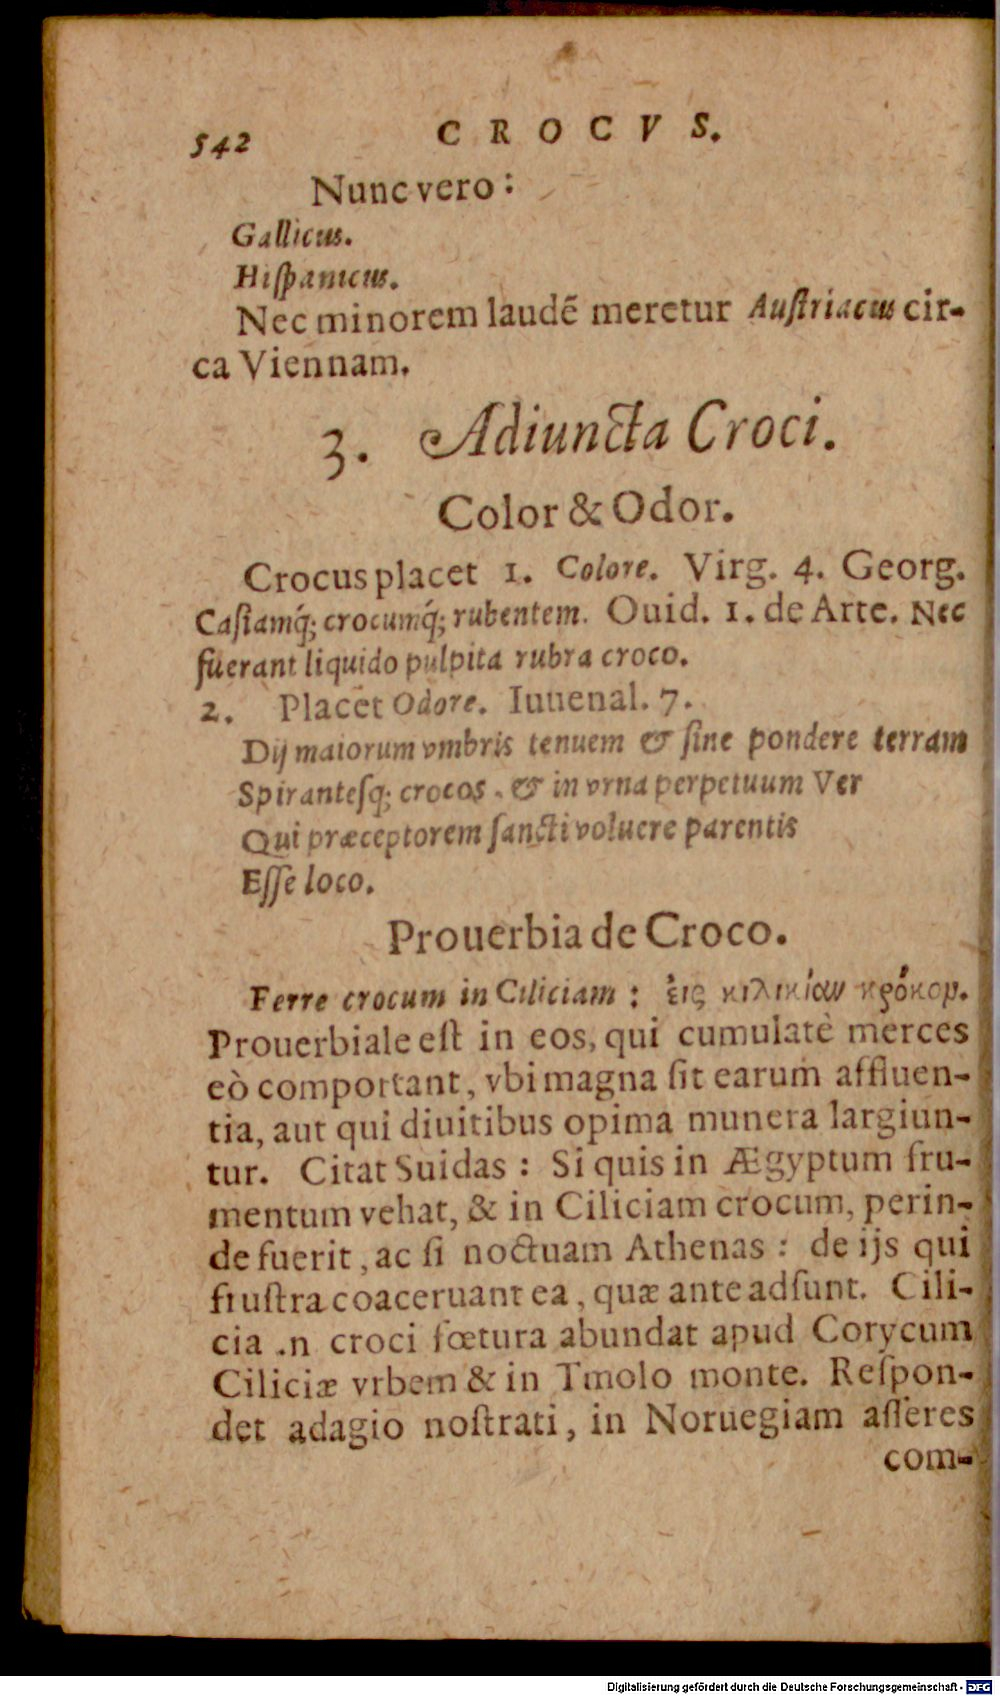 542 CROCVS.
Nunc vero:
Gallicus.
Hiſpanicus.
Nec minorem laudē meretur Auſtriacus cir-
ca Viennam.
3. Adiuncta Croci.
Color & Odor.
Crocus placet 1. Colore. Virg. 4. Georg.
Caſiamq́; crocumq́; rubentem. Ouid. 1. de Arte. Nec
fuerant liquido pulpita rubra croco.
2. Placet Odore. Iuuenal. 7.
Dij maiorum vmbris tenuem & ſine pondere terram
Spirantesq; crocos, & in vrna perpetuum Ver
Qui præceptorem ſancti voluere parentis
Eſſe loco.
Prouerbia de Croco.
Ferre crocum in Ciliciam: ἐις κιλικίαν κρόκον.
Prouerbiale eſt in eos, qui cumulatè merces
eò comportant, vbi magna ſit earum affluen-
tia, aut qui diuitibus opima munera largiun-
tur. Citat Suidas: Si quis in Ægyptum fru-
mentum vehat, & in Ciliciam crocum, perin-
de fuerit, ac ſi noctuam Athenas: de ijs qui
fruſtra coaceruant ea, quæ ante adſunt. Cili-
cia .n croci fœtura abundat apud Corycum
Ciliciæ vrbem & in Tmolo monte. Reſpon-
det adagio noſtrati, in Noruegiam aſſeres
com-
Digitalisierung gefördert durch die Deutsche Forschungsgemeinschaft - DFG